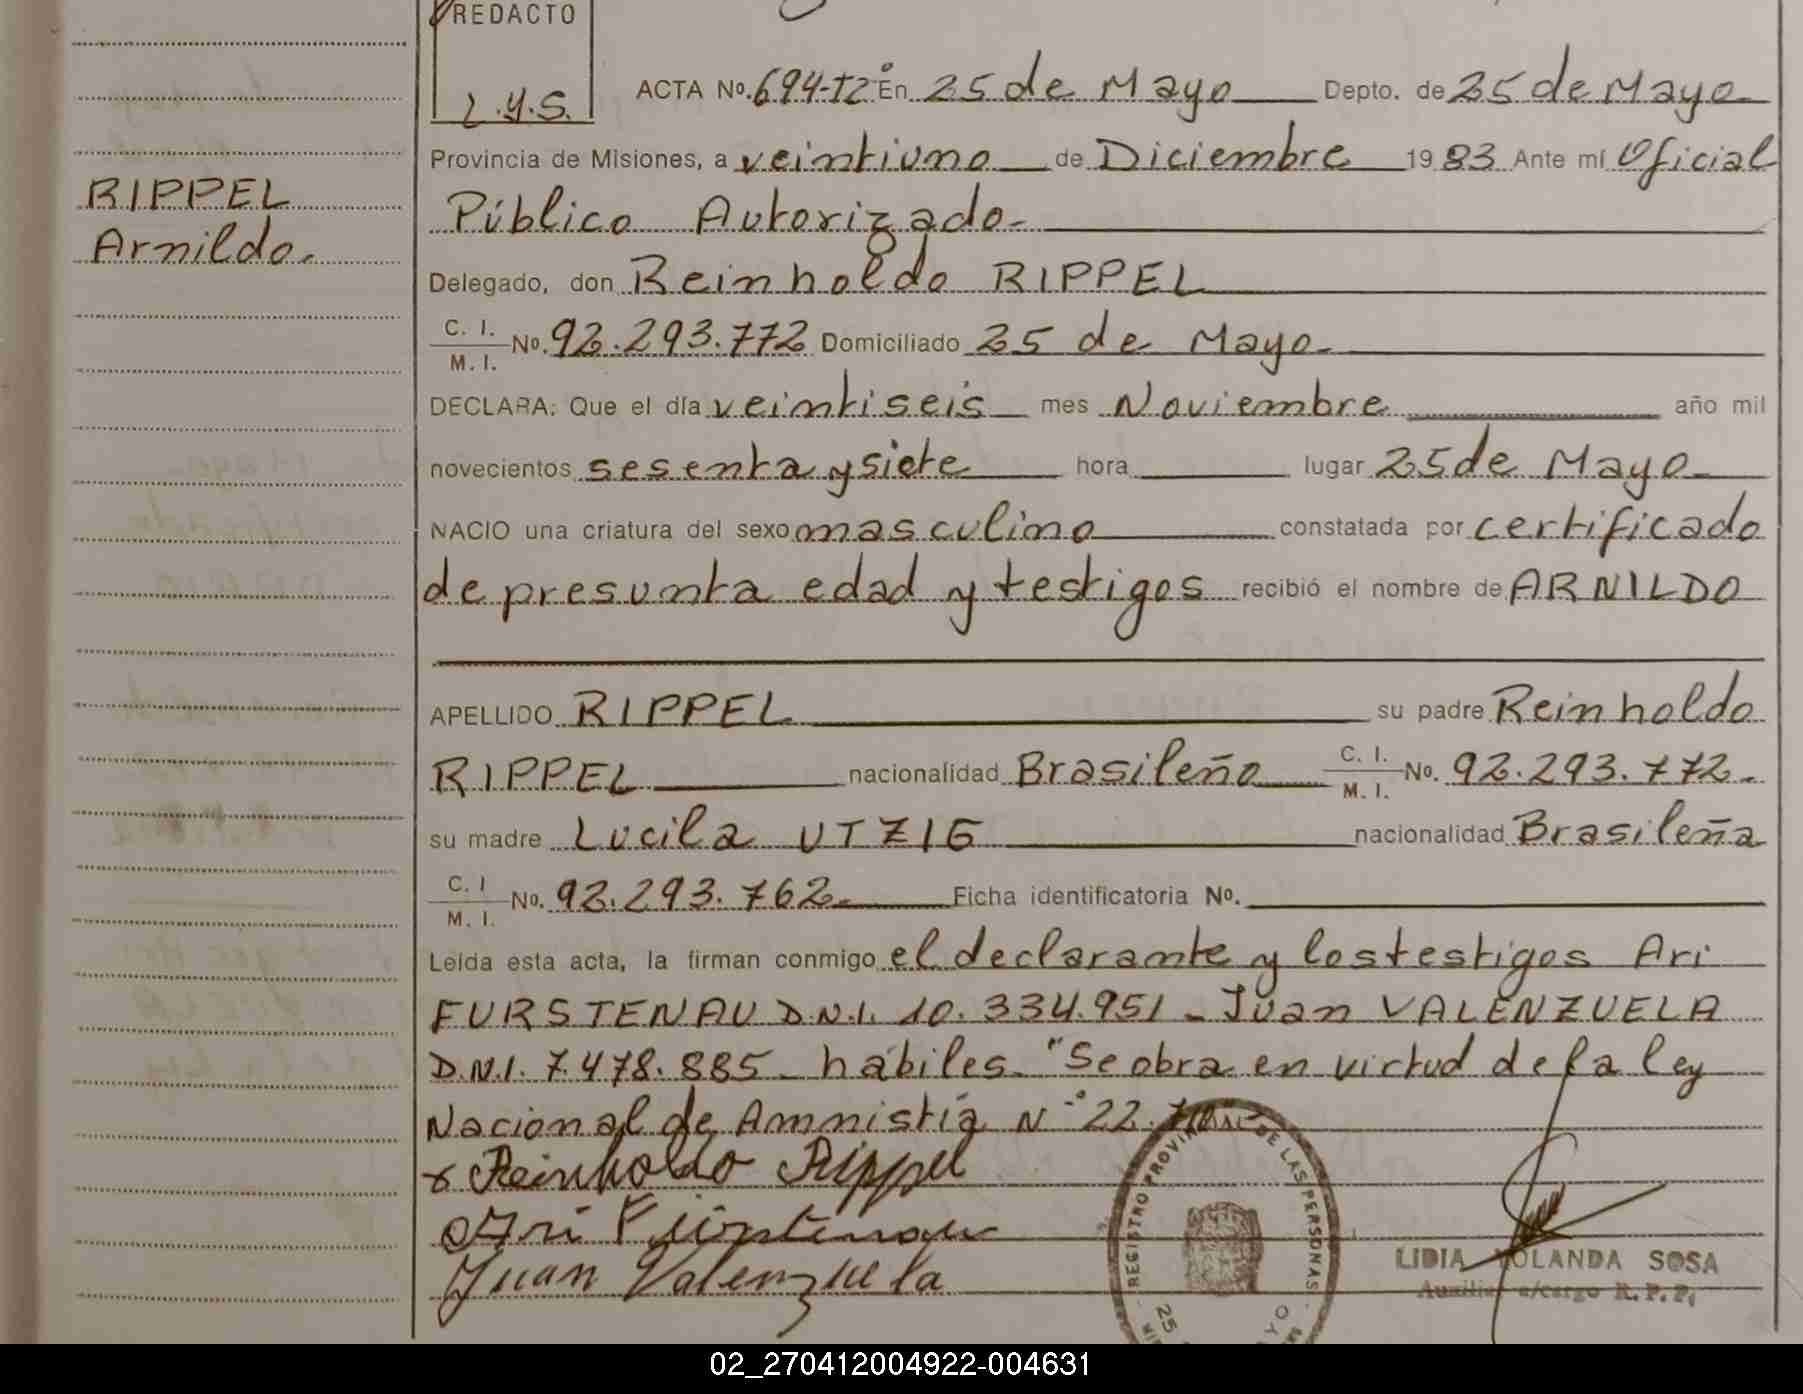 REDACTO
L.Y.S.
RIPPEL
Arnildo.
ACTA No. 694-T2° En 25 de Mayo Depto. de 25 de Mayo
Provincia de Misiones, a veintiuno de Diciembre 1983 Ante mí Oficial
Público Autorizado.
Delegado, don Reinholdo RIPPEL
C. I. / M. I. No. 92.293.772 Domiciliado 25 de Mayo.
DECLARA: Que el día veintiseis mes Noviembre año mil
novecientos sesenta y siete hora lugar 25 de Mayo
NACIO una criatura del sexo masculino constatada por certificado
de presunta edad y testigos recibió el nombre de ARNILDO
APELLIDO RIPPEL su padre Reinholdo
RIPPEL nacionalidad Brasileño C. I. / M. I. No. 92.293.772.
su madre Lucila UTZIG nacionalidad Brasileña
C. I / M. I. No. 92.293.762. Ficha identificatoria No.
Leída esta acta, la firman conmigo el declarante y los testigos Ari
FURSTENAU D.N.I. 10.334.951 - Juan VALENZUELA
D.N.I. 7.478.885 - hábiles. "Se obra en virtud de la ley
Nacional de Amnistía N° 22.
Reinholdo Rippel
Ari Fürstenau
Juan Valenzuela
REGISTRO PROVINCIAL DE LAS PERSONAS
25 MAYO
LIDIA YOLANDA SOSA
Auxiliar a/cargo R.P.P.
02_270412004922-004631